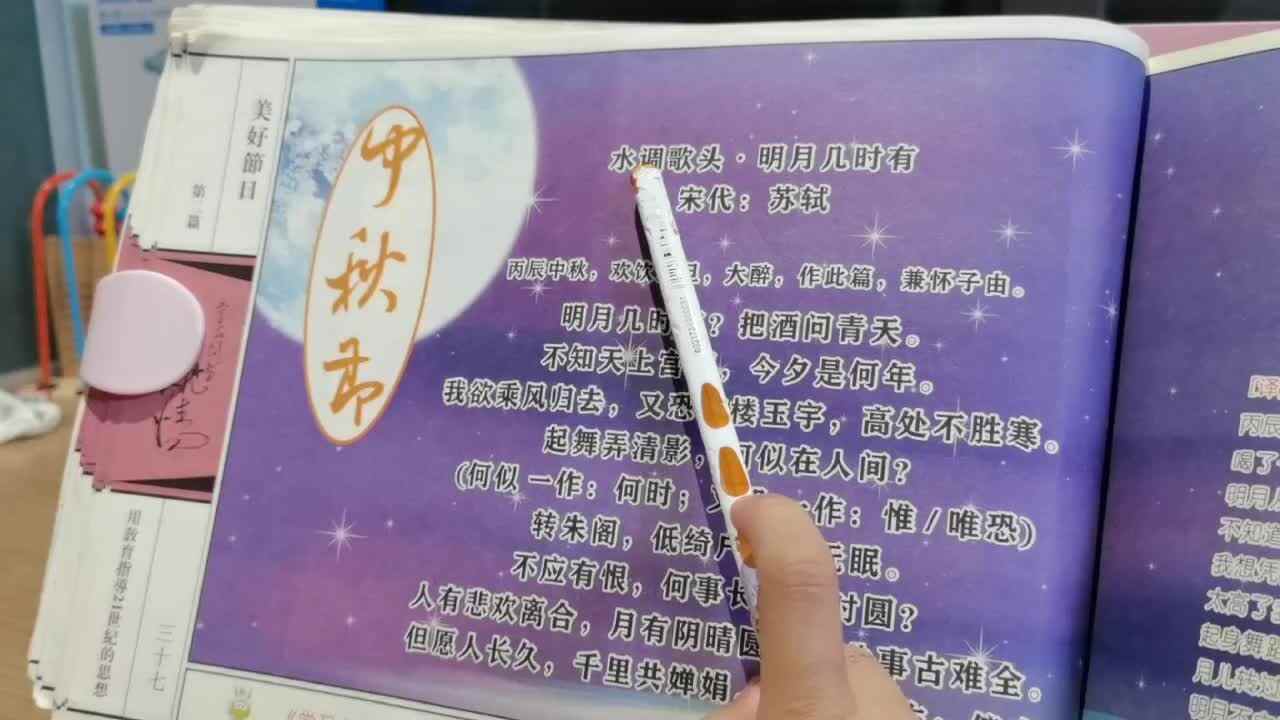 美好節日
第二篇
用教育指導21世紀的思想
三十七
中秋节
水调歌头·明月几时有
宋代：苏轼
丙辰中秋，欢饮 旦，大醉，作此篇，兼怀子由。
明月几时 ？把酒问青天。
不知天上宫 ，今夕是何年。
我欲乘风归去，又恐 楼玉宇，高处不胜寒。
起舞弄清影，何似在人间？
(何似 一作：何时；又 一作：惟/唯恐)
转朱阁，低绮户 无眠。
不应有恨，何事长 时圆？
人有悲欢离合，月有阴晴圆 事古难全。
但愿人长久，千里共婵娟
丙辰
喝了
明月
不知道
我想凭
太高了
起身舞
月儿转过
明月不